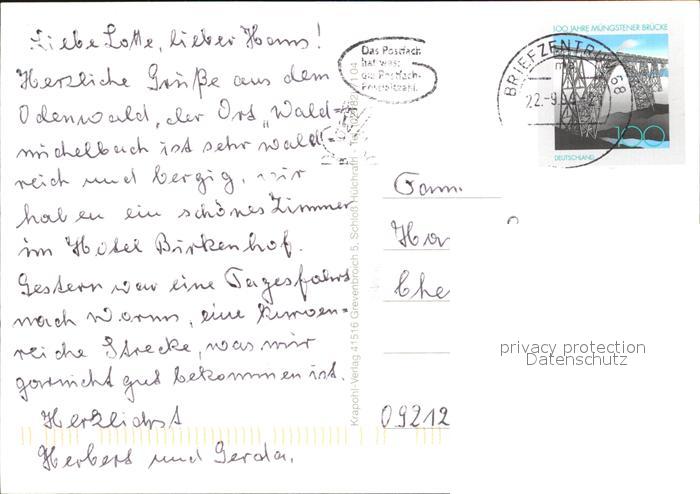 Liebe Lotte, lieber Hans!
Herzliche Grüße aus dem
Odenwald, der Ort „Wald=
michelbach ist sehr wald=
reich und bergig, wir
haben ein schönes Zimmer
im Hotel Birkenhof.
Gestern war eine Tagesfahrt
nach Worms, eine kurven=
reiche Strecke, was mir
garnicht gut bekommen ist.
Herzlichst
Herbert und Gerda.
Das Postfach
hat was:
die Postfach-
Postleitzahl.
Krapohl-Verlag 41516 Grevenbroich 5, Schloß Hülchrath
BRIEFZENTRUM 58
22.-9.
100 JAHRE MÜNGSTENER BRÜCKE
100
DEUTSCHLAND
Fam.
Ha
Che
09212
privacy protection
Datenschutz